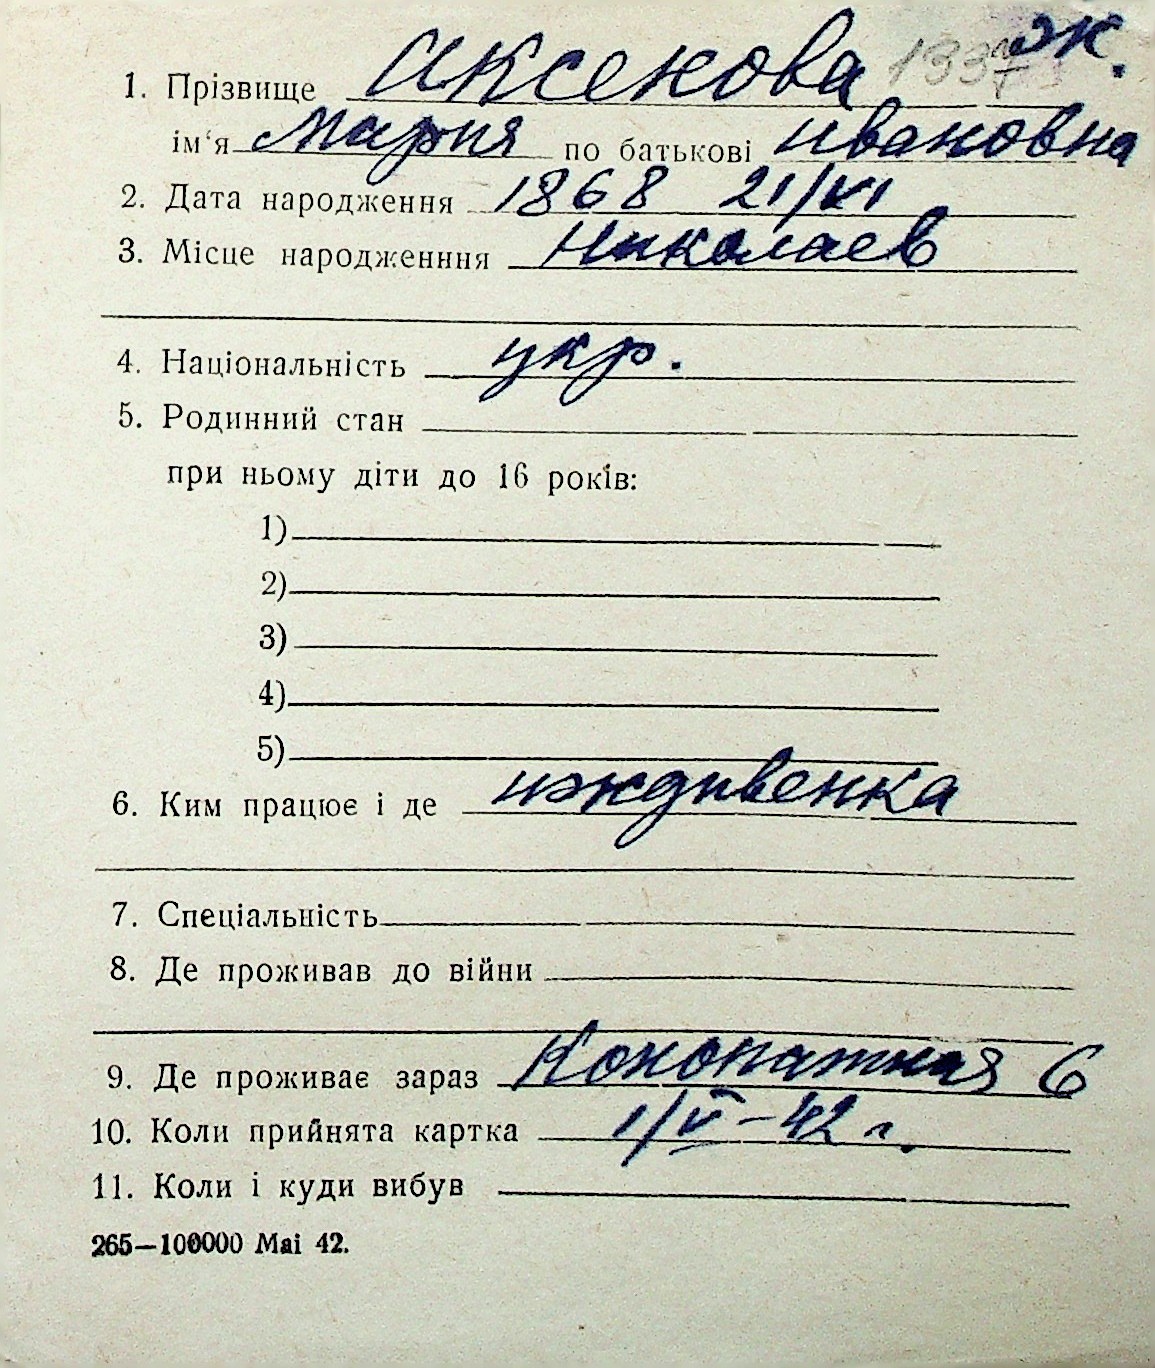 ж.
1. Прізвище Аксенова 133
ім‘я Мария по батькові Ивановна
2. Дата народження 1868 21/VI
3. Місце народженння Николаев
4. Національність укр.
5. Родинний стан
при ньому діти до 16 років:
1)
2)
3)
4)
5)
6. Ким працює і де иждивенка
7. Спеціальність
8. Де проживав до війни
9. Де проживає зараз Конопатная 6
10. Коли прийнята картка 1/V-42 г.
11. Коли і куди вибув
265—100000 Маі 42.